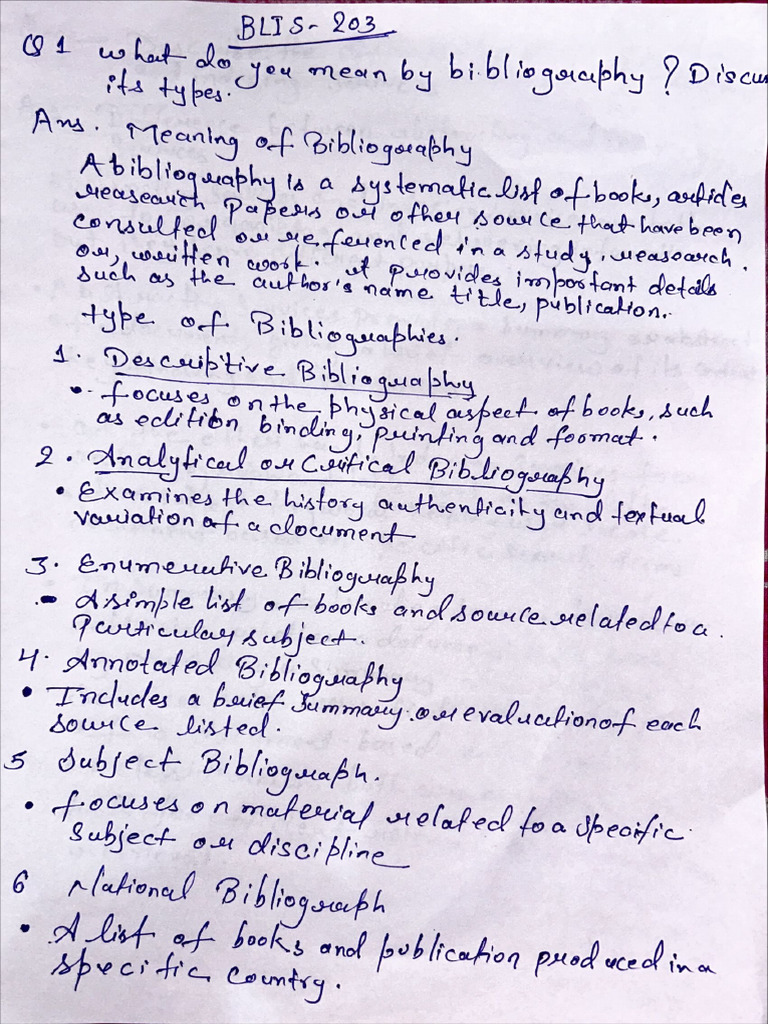 BLIS-203
Q1 what do you mean by bibliography ? Discus
its types.
Ans. Meaning of Bibliography
A bibliography is a systematic list of books, articles
reasearch Papers or other source that have been
consulted or referenced in a study, reasearch.
or, written work. it provides important details
such as the author's name title, publication.
type of Bibliographies.
1. Descriptive Bibliography
• focuses on the physical aspect of books, such
as edition binding, printing and foomat.
2. Analytical or Critical Bibliography
• Examines the history authenticity and textual
variation of a document
3. Enumerative Bibliography
• A simple list of books and source related to a.
Particular subject.
4. Annotated Bibliography
• Includes a brief Summary or evaluation of each
source listed.
5 Subject Bibliograph.
• focuses on material related to a specific
subject or discipline
6 National Bibliograph
• A list of books and publication produced in a
specific country.